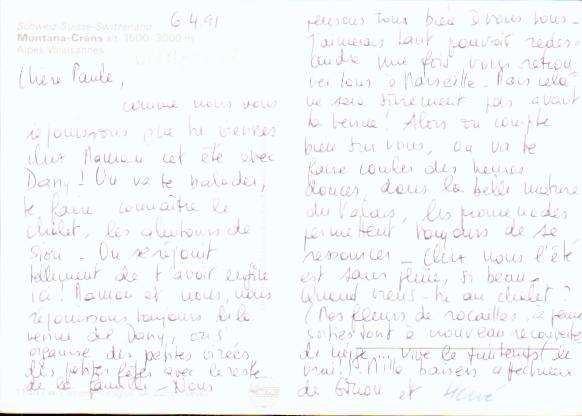 6 4 91
Schweiz-Suisse-Switzerland
Montana-Crans alt. 1500-3000 m
Alpes Valaisannes
Chère Paule,
comme nous nous
réjouissons que tu viennes
chez Maman cet été avec
Dany! On va te balader,
te faire connaître le
chalet, les alentours de
Sion - On se réjouit
tellement de t'avoir enfin
ici! Maman et nous, nous
réjouissons toujours de la
venue de Dany, on s'
organise des petites virées
des petites fêtes avec le reste
de la famille - Nous
pensons tous bien à vous tous -
J'aimerais tant pouvoir redes-
cendre une fois vous retrou
ver tous à Marseille - Mais cela
ne sera sûrement pas avant
ta venue! Alors on compte
bien sur vous, on va te
faire couler des heures
douces, dans la belle nature
du Valais, les promenades
permettent toujours de se
ressourcer - Chez nous l'été
est sans pluie, si beau -
Quand viens-tu au chalet?
(Mes fleurs de rocailles, à peine
sorties sont à nouveau recouvertes
de neige... Vive le printemps le
vrai!) Mille baisers affectueux
de et Hervé